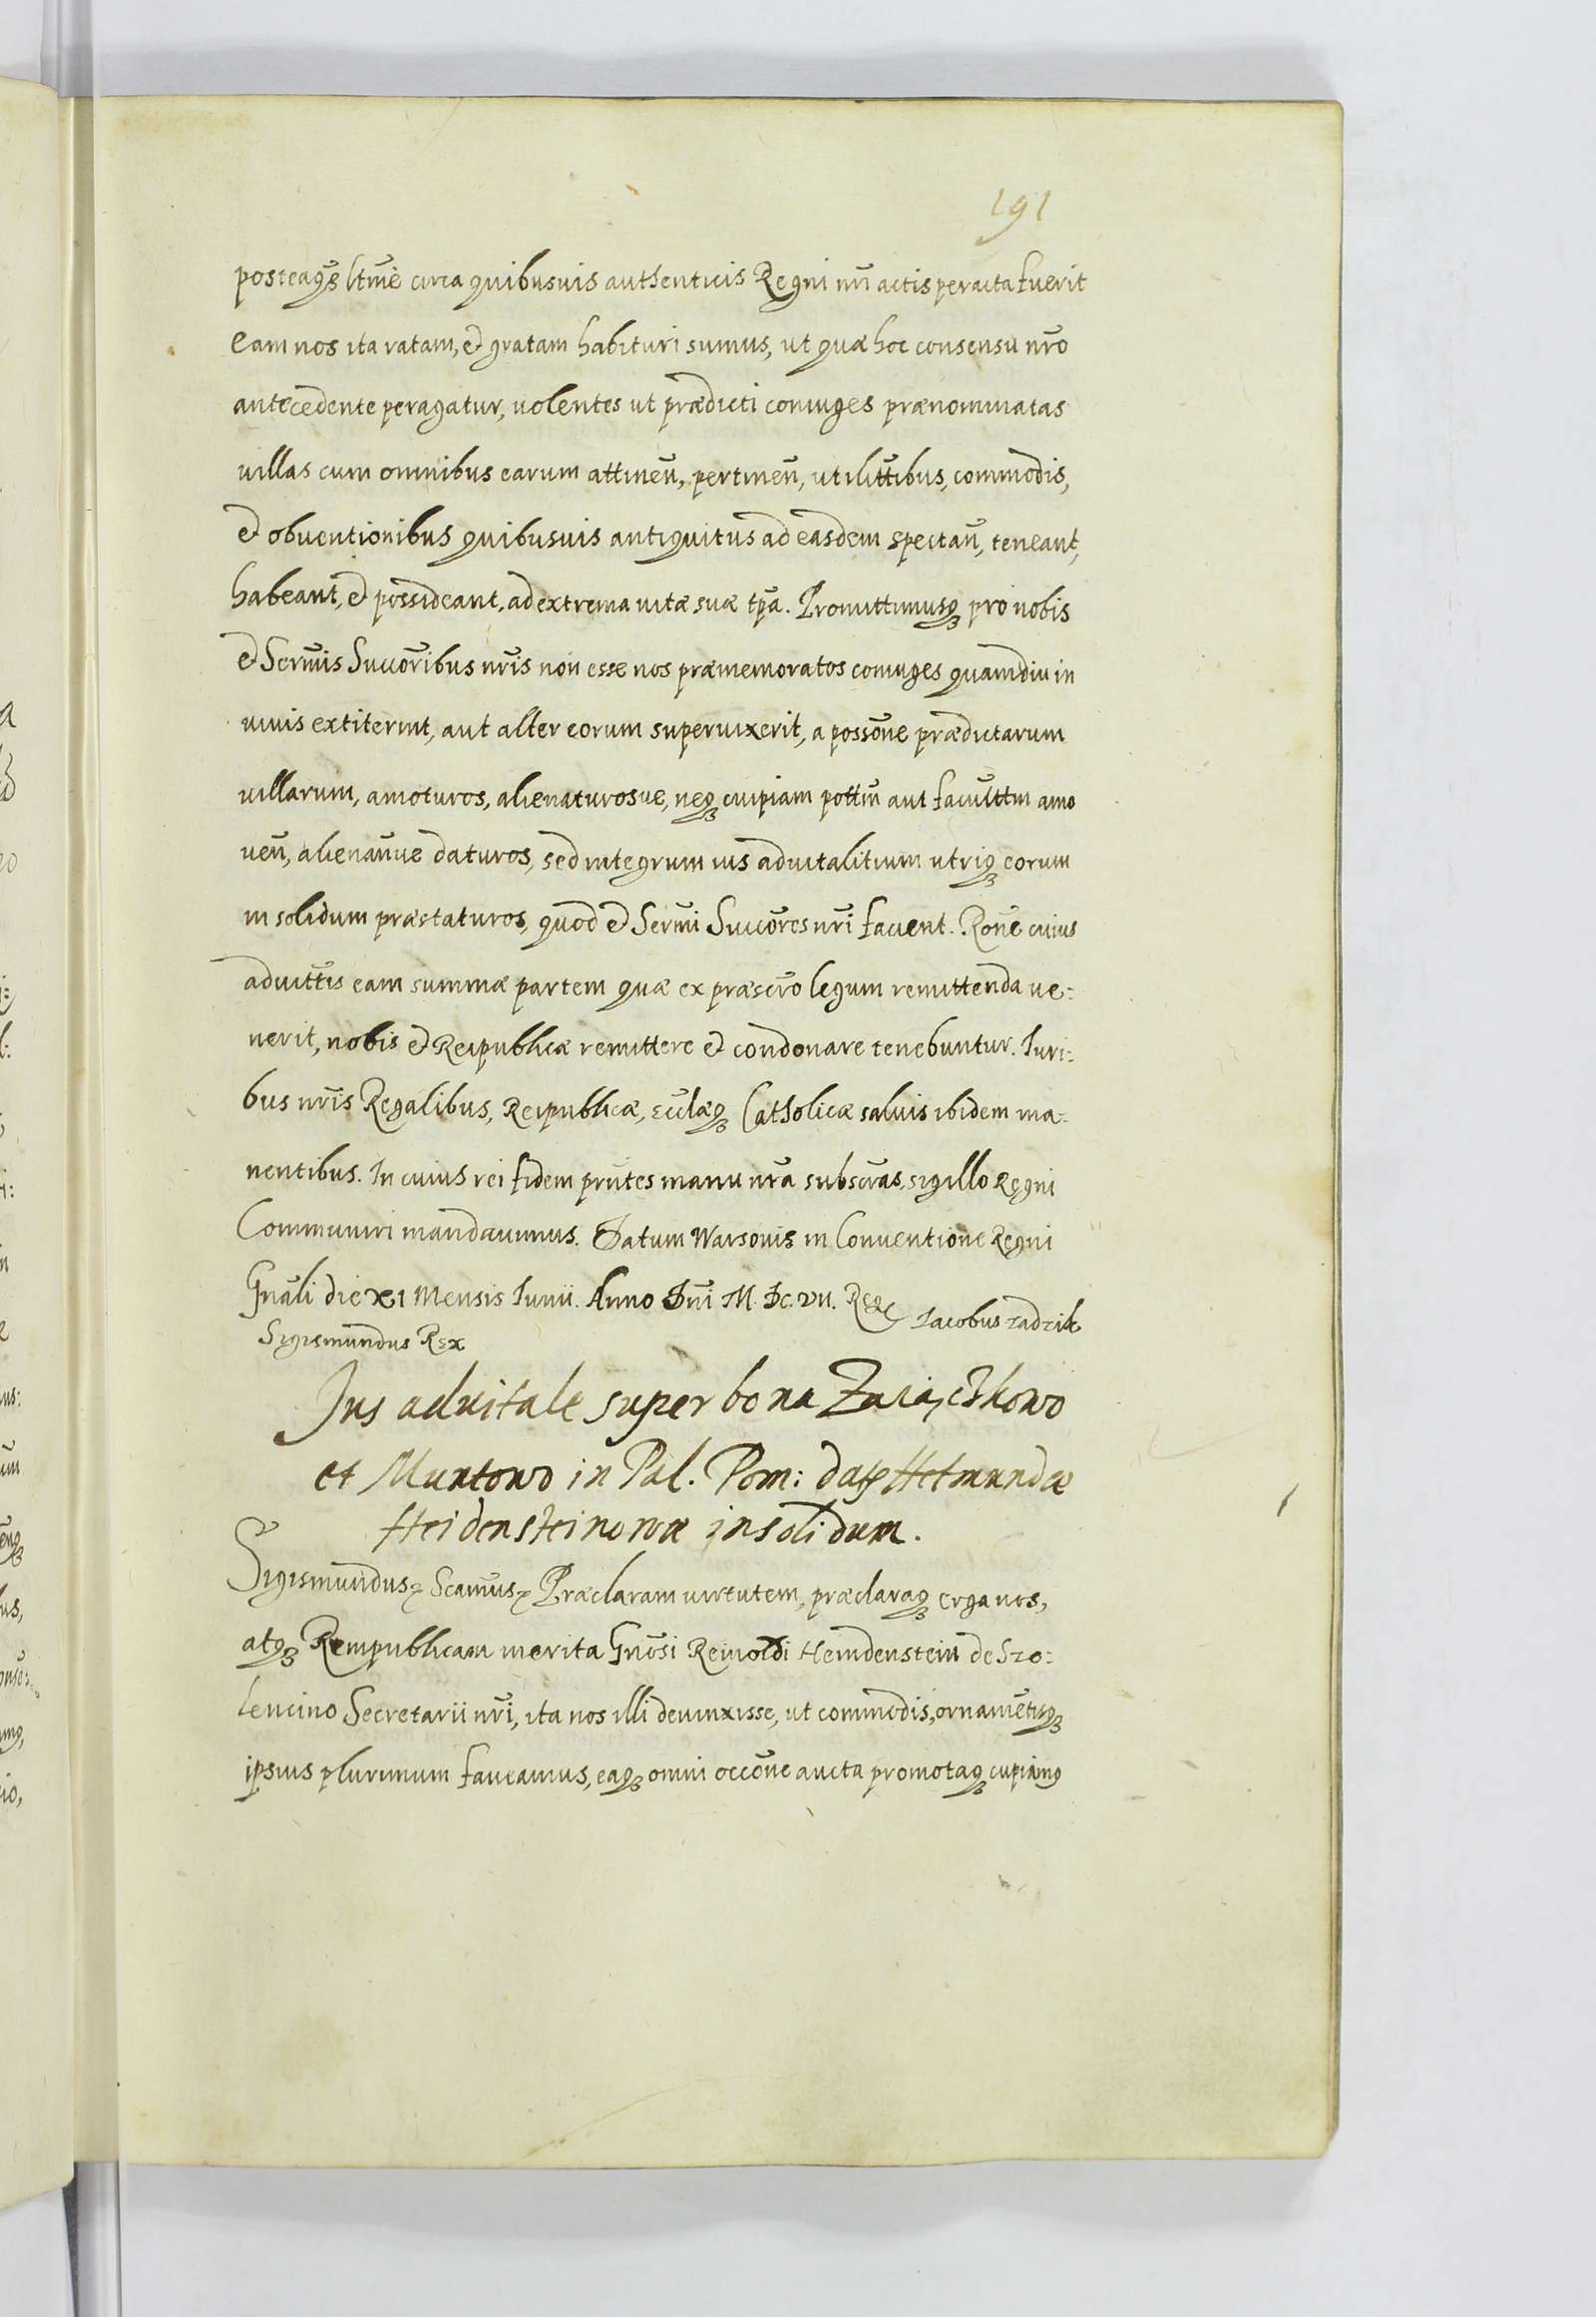 191
posteaqȝ ltm̃e circa quibusuis authenticis Regni nr̃i actis peracta fuerit
eam nos ita ratam, et gratam habituri sumus, ut quæ hoc consensu nr̃o
antecedente peragatur, uolentes ut prædicti coniuges prænominatas
uillas cum omnibus earum attineñ, pertineñ, utilitt̃ibus, commodis,
et obuentionibus quibusuis antiquitus ad easdem spectañ, teneant,
habeant, et possideant, ad extrema uitæ suæ tp̃a. Promittimusqȝ pro nobis
et Serm̃is Succor̃ibus nr̃is non esse nos præmemoratos coniuges quamdiu in
uiuis extiterint, aut alter eorum superuixerit, a posson̄e prædictarum
uillarum, amoturos, alienaturosue, neqȝ cuipiam pottm̃ aut facultt̃m amo
ueñ, alienañue daturos, sed integrum ius aduitalitium utriqȝ eorum
in solidum præstaturos, quod et Serm̃i Succor̃es nr̃i facient. Ron̄e cuius
aduitt̃is eam summæ partem quæ ex præscr̃o legum remittenda ue:
nerit, nobis et Reipublicæ remittere et condonare tenebuntur. Iuri:
bus nr̃is Regalibus, Reipublicæ, Eccl̃æqȝ Catholicæ saluis ibidem ma:
nentibus. In cuius rei fidem pr̃ntes manu nr̃a subscr̃as, sigillo Regni
Communiri mandauimus. Datum Warsouiæ in Conuentione Regni
Gn̄ali die XI Mensis Iunii. Anno Dn̄i M. DC. VII. Reg
Iacobus Zadzik
Sigismundus Rex
Jus aduitale super bona Zaiączkowo
et Muntowo in Pal. Pom: datȩ Hetmundæ
Heidensteinowæ in solidum.
Sigismundus Scam̃us Præclaram uirtutem, præclaraqȝ erga nos,
atqȝ Rempublicam merita Gnōsi Reinoldi Heindenstein de Szo:
lencino Secretarii nr̃i, ita nos illi deuinxisse, ut commodis, ornamẽtisqȝ
ipsius plurimum faueamus, eaqȝ omni occōne aucta promotaqȝ cupiamus